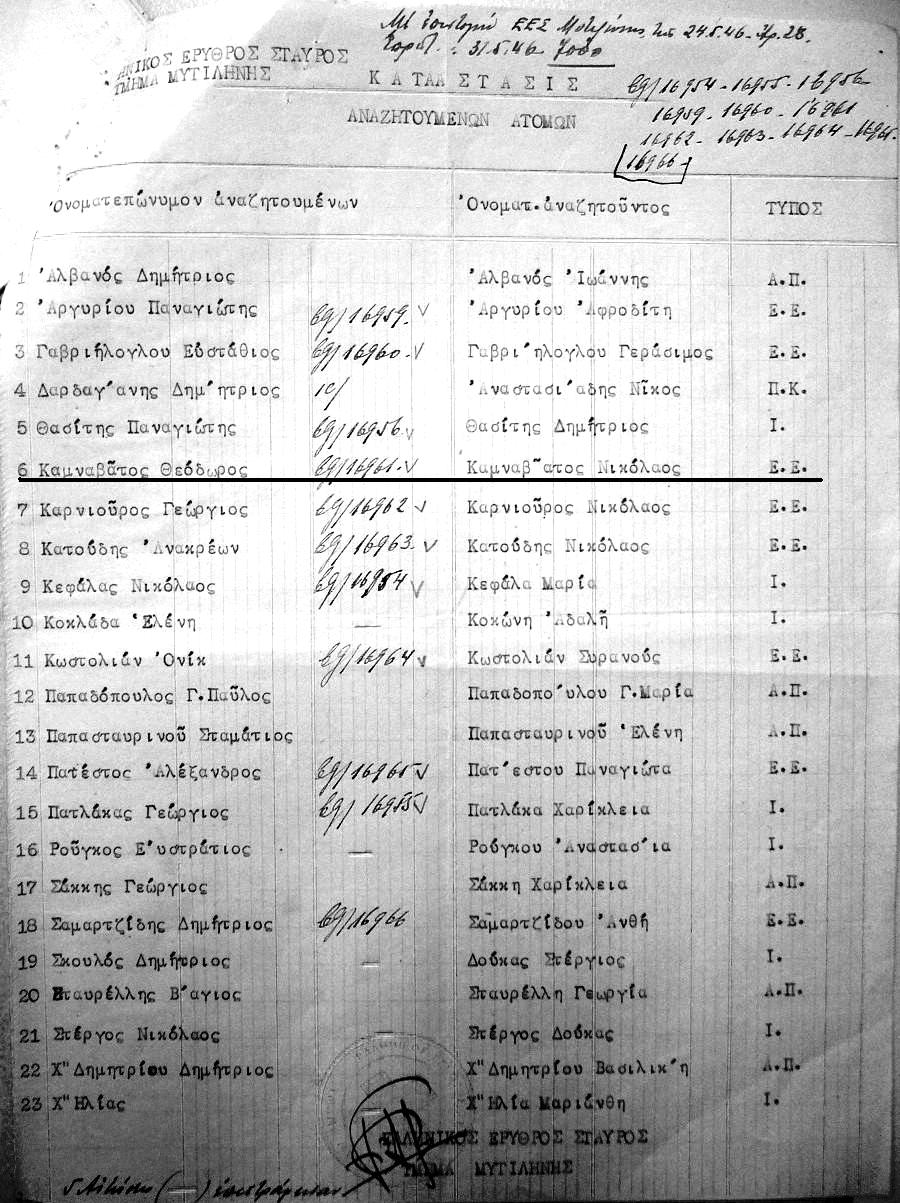 Μὲ ἐπιστολὴ ΕΕΣ Μυτιλήνης τῆς 24.5.46 - Ἀρ. 28
31/5.46
ΗΝΙΚΟΣ ΕΡΥΘΡΟΣ ΣΤΑΥΡΟΣ
ΤΜΗΜΑ ΜΥΤΙΛΗΝΗΣ
ΚΑΤΑΑΣΤΑΣΙΣ
ΑΝΑΖΗΤΟΥΜΕΝΩΝ ΑΤΟΜΩΝ
Eg/16954 - 16955 - 16956
16959 - 16960 - 16961
16962 - 16963 - 16964 - 16965
16966
Ὀνοματεπώνυμον ἀναζητουμένων Ὀνοματ.ἀναζητοῦντος ΤΥΠΟΣ
1 Ἀλβανός Δημήτριος Ἀλβανός Ἰωάννης Α.Π.
2 Ἀργυρίου Παναγιώτης Eg/16959. ✓ Ἀργυρίου Ἀφροδίτη Ε.Ε.
3 Γαβριήλογλου Εὐστάθιος Eg/16960. ✓ Γαβρι'ηλογλου Γεράσιμος Ε.Ε.
4 Δαρδαγ'ανης Δημ'ητριος ic/ Ἀναστασι'αδης Νῖκος Π.Κ.
5 Θασίτης Παναγιώτης Eg/16956 ✓ Θασίτης Δημήτριος Ι.
6 Καμναβᾶτος Θεόδωρος Eg/16961. ✓ Καμναβ῀ατος Νικόλαος Ε.Ε.
7 Καρνιοῦρος Γεώργιος Eg/16962 ✓ Καρνιοῦρος Νικόλαος Ε.Ε.
8 Κατούδης Ἀνακρέων Eg/16963. ✓ Κατούδης Νικόλαος Ε.Ε.
9 Κεφάλας Νικόλαος Eg/16954 ✓ Κεφάλα Μαρία Ι.
10 Κοκλάδα Ἑλένη — Κοκώνη Ἀδαλῆ Ι.
11 Κωστολιάν Ὀνίκ Eg/16964 ✓ Κωστολιάν Συρανούς Ε.Ε.
12 Παπαδόπουλος Γ.Παῦλος Παπαδοπο'υλου Γ.Μαρία Α.Π.
13 Παπασταυρινοῦ Σταμάτιος Παπασταυρινοῦ Ἑλένη Α.Π.
14 Πατέστος Ἀλέξανδρος Eg/16965 ✓ Πατ'εστου Παναγιώτα Ε.Ε.
15 Πατλάκας Γεώργιος Eg/16955 ✓ Πατλάκα Χαρίκλεια Ι.
16 Ροῦγκος Ε'υστράτιος — Ρούγκου Ἀναστασ'ια Ι.
17 Σάκκης Γεώργιος Σάκκη Χαρίκλεια Α.Π.
18 Σαμαρτζίδης Δημήτριος Eg/16966 Σαμαρτζίδου Ἀνθή Ε.Ε.
19 Σκουλός Δημήτριος — Δούκας Στέργιος Ι.
20 Σταυρέλλης Β'αγιος Σταυρέλλη Γεωργία Α.Π.
21 Στέργος Νικόλαος Στέργος Δούκας Ι.
22 Χ"Δημητρίου Δημήτριος Χ"Δημητρίου Βασιλικ'η Α.Π.
23 Χ"Ηλίας — Χ"Ηλία Μαριάνθη Ι.
ΕΛΛΗΝΙΚΟΣ ΕΡΥΘΡΟΣ ΣΤΑΥΡΟΣ
ΤΜΗΜΑ ΜΥΤΙΛΗΝΗΣ
5 Αἰτήσεις (—) ἐπεστράφησαν